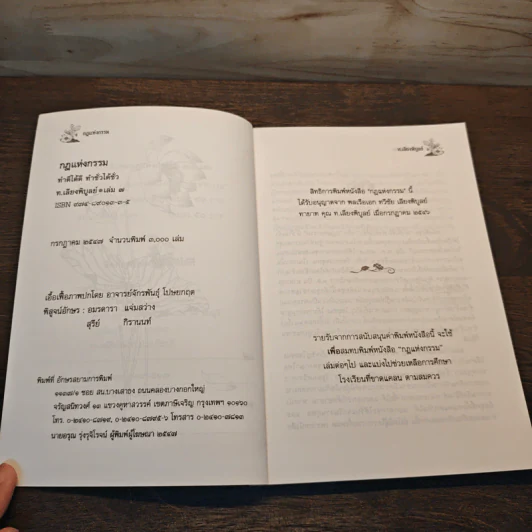 กฎแห่งกรรม
กฎแห่งกรรม
ทำดีได้ดี ทำชั่วได้ชั่ว
ท.เลียงพิบูลย์ เล่ม ๗
ISBN ๙๗๔-๘๙๐๑๓-๓-๕
กรกฎาคม ๒๕๔๗ จำนวนพิมพ์ ๓,๐๐๐ เล่ม
เอื้อเฟื้อภาพปกโดย อาจารย์จักรพันธุ์ โปษยกฤต
พิสูจน์อักษร : อมรดารา แจ่มสว่าง
สุรีย์ กีรานนท์
พิมพ์ที่ อักษรสยามการพิมพ์
๑๑๓๗/๑ ซอย สน.บางเสาธง ถนนคลองบางกอกใหญ่
จรัญสนิทวงศ์ ๑๓ แขวงคูหาสวรรค์ เขตภาษีเจริญ กรุงเทพฯ ๑๐๑๖๐
โทร. ๐-๒๔๑๐-๘๗๑๙, ๐-๒๔๑๐-๘๗๙๕-๖ โทรสาร ๐-๒๔๑๐-๗๘๑๓
นายอรุณ รุ่งรุจิโรจน์ ผู้พิมพ์ผู้โฆษณา ๒๕๔๗
ท.เลียงพิบูลย์
สิทธิการพิมพ์หนังสือ "กฎแห่งกรรม" นี้
ได้รับอนุญาตจาก พลเรือเอก ทวีชัย เลียงพิบูลย์
ทายาท คุณ ท.เลียงพิบูลย์ เมื่อกรกฎาคม ๒๕๔๖
รายรับจากการสนับสนุนค่าพิมพ์หนังสือนี้ จะใช้
เพื่อสมทบพิมพ์หนังสือ "กฎแห่งกรรม"
เล่มต่อๆไป และแบ่งไปช่วยเหลือการศึกษา
โรงเรียนที่ขาดแคลน ตามสมควร